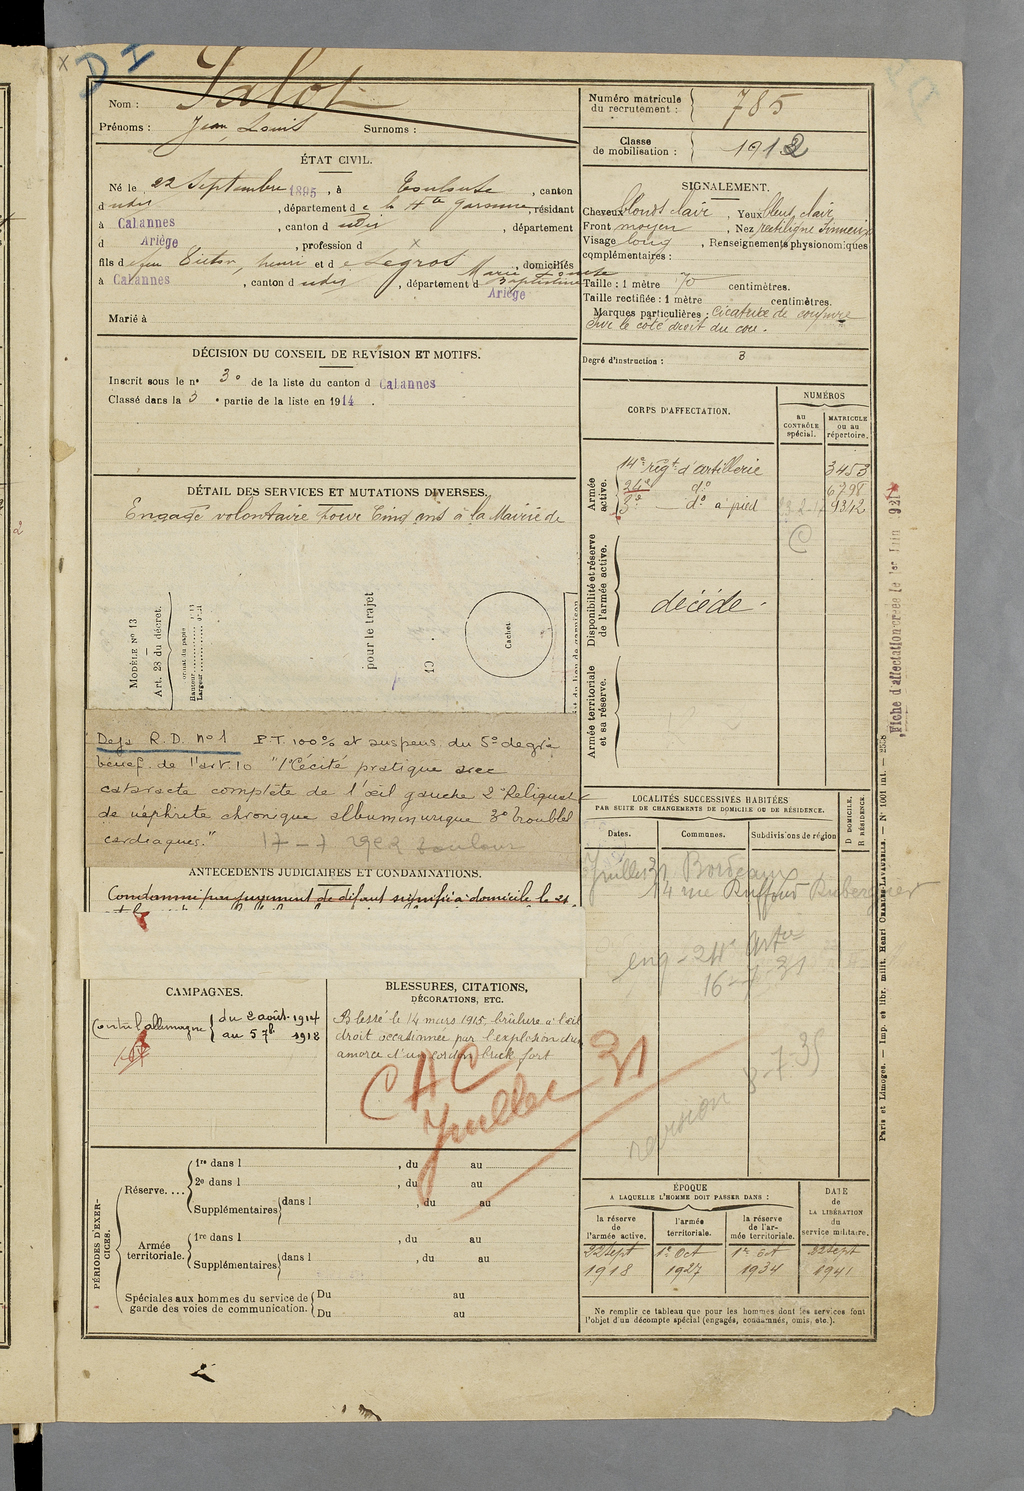 D I
Nom : Salot
Prénoms : Jean Louis Surnoms :
ÉTAT CIVIL.
Né le 22 Septembre 1895, à Toulouse, canton
d udit, département de la Hte Garonne, résidant
à Cabannes, canton d udit, département
d Ariège, profession d x
fils d feu Victon, henri et de Legros Marie Baptistine, domiciliés
à Cabannes, canton d udit, département d Ariège
Marié à
DÉCISION DU CONSEIL DE REVISION ET MOTIFS.
Inscrit sous le n° 3° de la liste du canton d Cabannes
Classé dans la 3e partie de la liste en 1914.
DÉTAIL DES SERVICES ET MUTATIONS DIVERSES.
Engagé volontaire pour Cinq ans à la Mairie de
MODÈLE N° 13
Art. 28 du décret.
Format du papier
Hauteur
Largeur
pour le trajet
19 .
Cachet
Déjà R.D. n°1 P.T. 100% et suspens. du 5° degré
bénéf. de l'art. 10 "1° Cécité pratique avec
cataracte complete de l'œil gauche 2° Reliquat
de néphrite chronique albuminurique 3° troubles
cardiaques."
ANTÉCÉDENTS JUDICIAIRES ET CONDAMNATIONS.
Condamné par jugement de défaut signifié à domicile le 21
CAMPAGNES.
Contre l'allemagne { du 2 août 1914
au 5 7b 1918
BLESSURES, CITATIONS,
DÉCORATIONS, ETC.
Blessé le 14 mars 1915, brûlure à l'œil
droit occasionnée par l'explosion d'une
amorce d'un cordon brick fort
CAC
Juillet 31
PÉRIODES D'EXERCICES.
Réserve....
1re dans l , du au
2e dans l , du au
Supplémentaires dans l , du au
Armée territoriale.
1re dans l , du au
Supplémentaires dans l , du au
Spéciales aux hommes du service de garde des voies de communication.
Du au
Du au
Numéro matricule du recrutement : 785
Classe de mobilisation : 1912
SIGNALEMENT.
Cheveux blonds clair, Yeux bleus clair
Front moyen, Nez rectiligne sinueux
Visage long, Renseignements physionomiques
complémentaires :
Taille : 1 mètre 70 centimètres.
Taille rectifiée : 1 mètre centimètres.
Marques particulières : Cicatrice de coupure
sur le coté droit du cou.
Degré d'instruction : 3
CORPS D'AFFECTATION.
NUMÉROS
au CONTRÔLE spécial.
MATRICULE ou au répertoire.
Armée active.
14e régt d'artillerie 3453
24e d° 6798
3e d° à pied 9342
Disponibilité et réserve de l'armée active.
décédé.
Armée territoriale et sa réserve.
Fiche d'affectation créée le 1er Juin 1921
LOCALITÉS SUCCESSIVES HABITÉES
PAR SUITE DE CHANGEMENTS DE DOMICILE OU DE RÉSIDENCE.
Dates. Communes. Subdivisions de région
D DOMICILE. R RÉSIDENCE.
Juillet 31 Bordeaux
14 rue
16-7-31
revision 8-7-35
ÉPOQUE
A LAQUELLE L'HOMME DOIT PASSER DANS :
la réserve de l'armée active.
l'armée territoriale.
la réserve de l'armée territoriale.
DATE de LA LIBÉRATION du service militaire.
22 Sept 1er Oct 1er Oct 22 Sept
1918 1927 1934 1941
Ne remplir ce tableau que pour les hommes dont les services font
l'objet d'un décompte spécial (engagés, condamnés, omis, etc.).
Paris et Limoges. — Imp. et libr. milit. Henri CHARLES-LAVAUZELLE. — N° 1001 int. — 2558